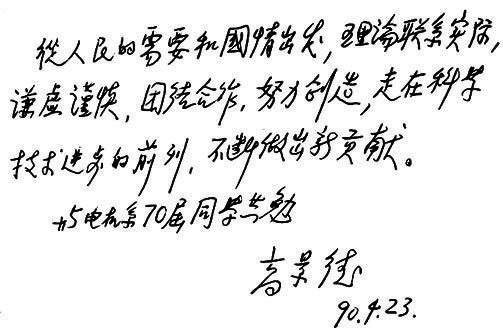 從人民的需要和國情出发,理論联系实际,
谦虚谨慎,团结合作,努力创造,走在科学
技术进步的前列,不断做出新贡献。
与电机系70届同学共勉
高景德
90.4.23.